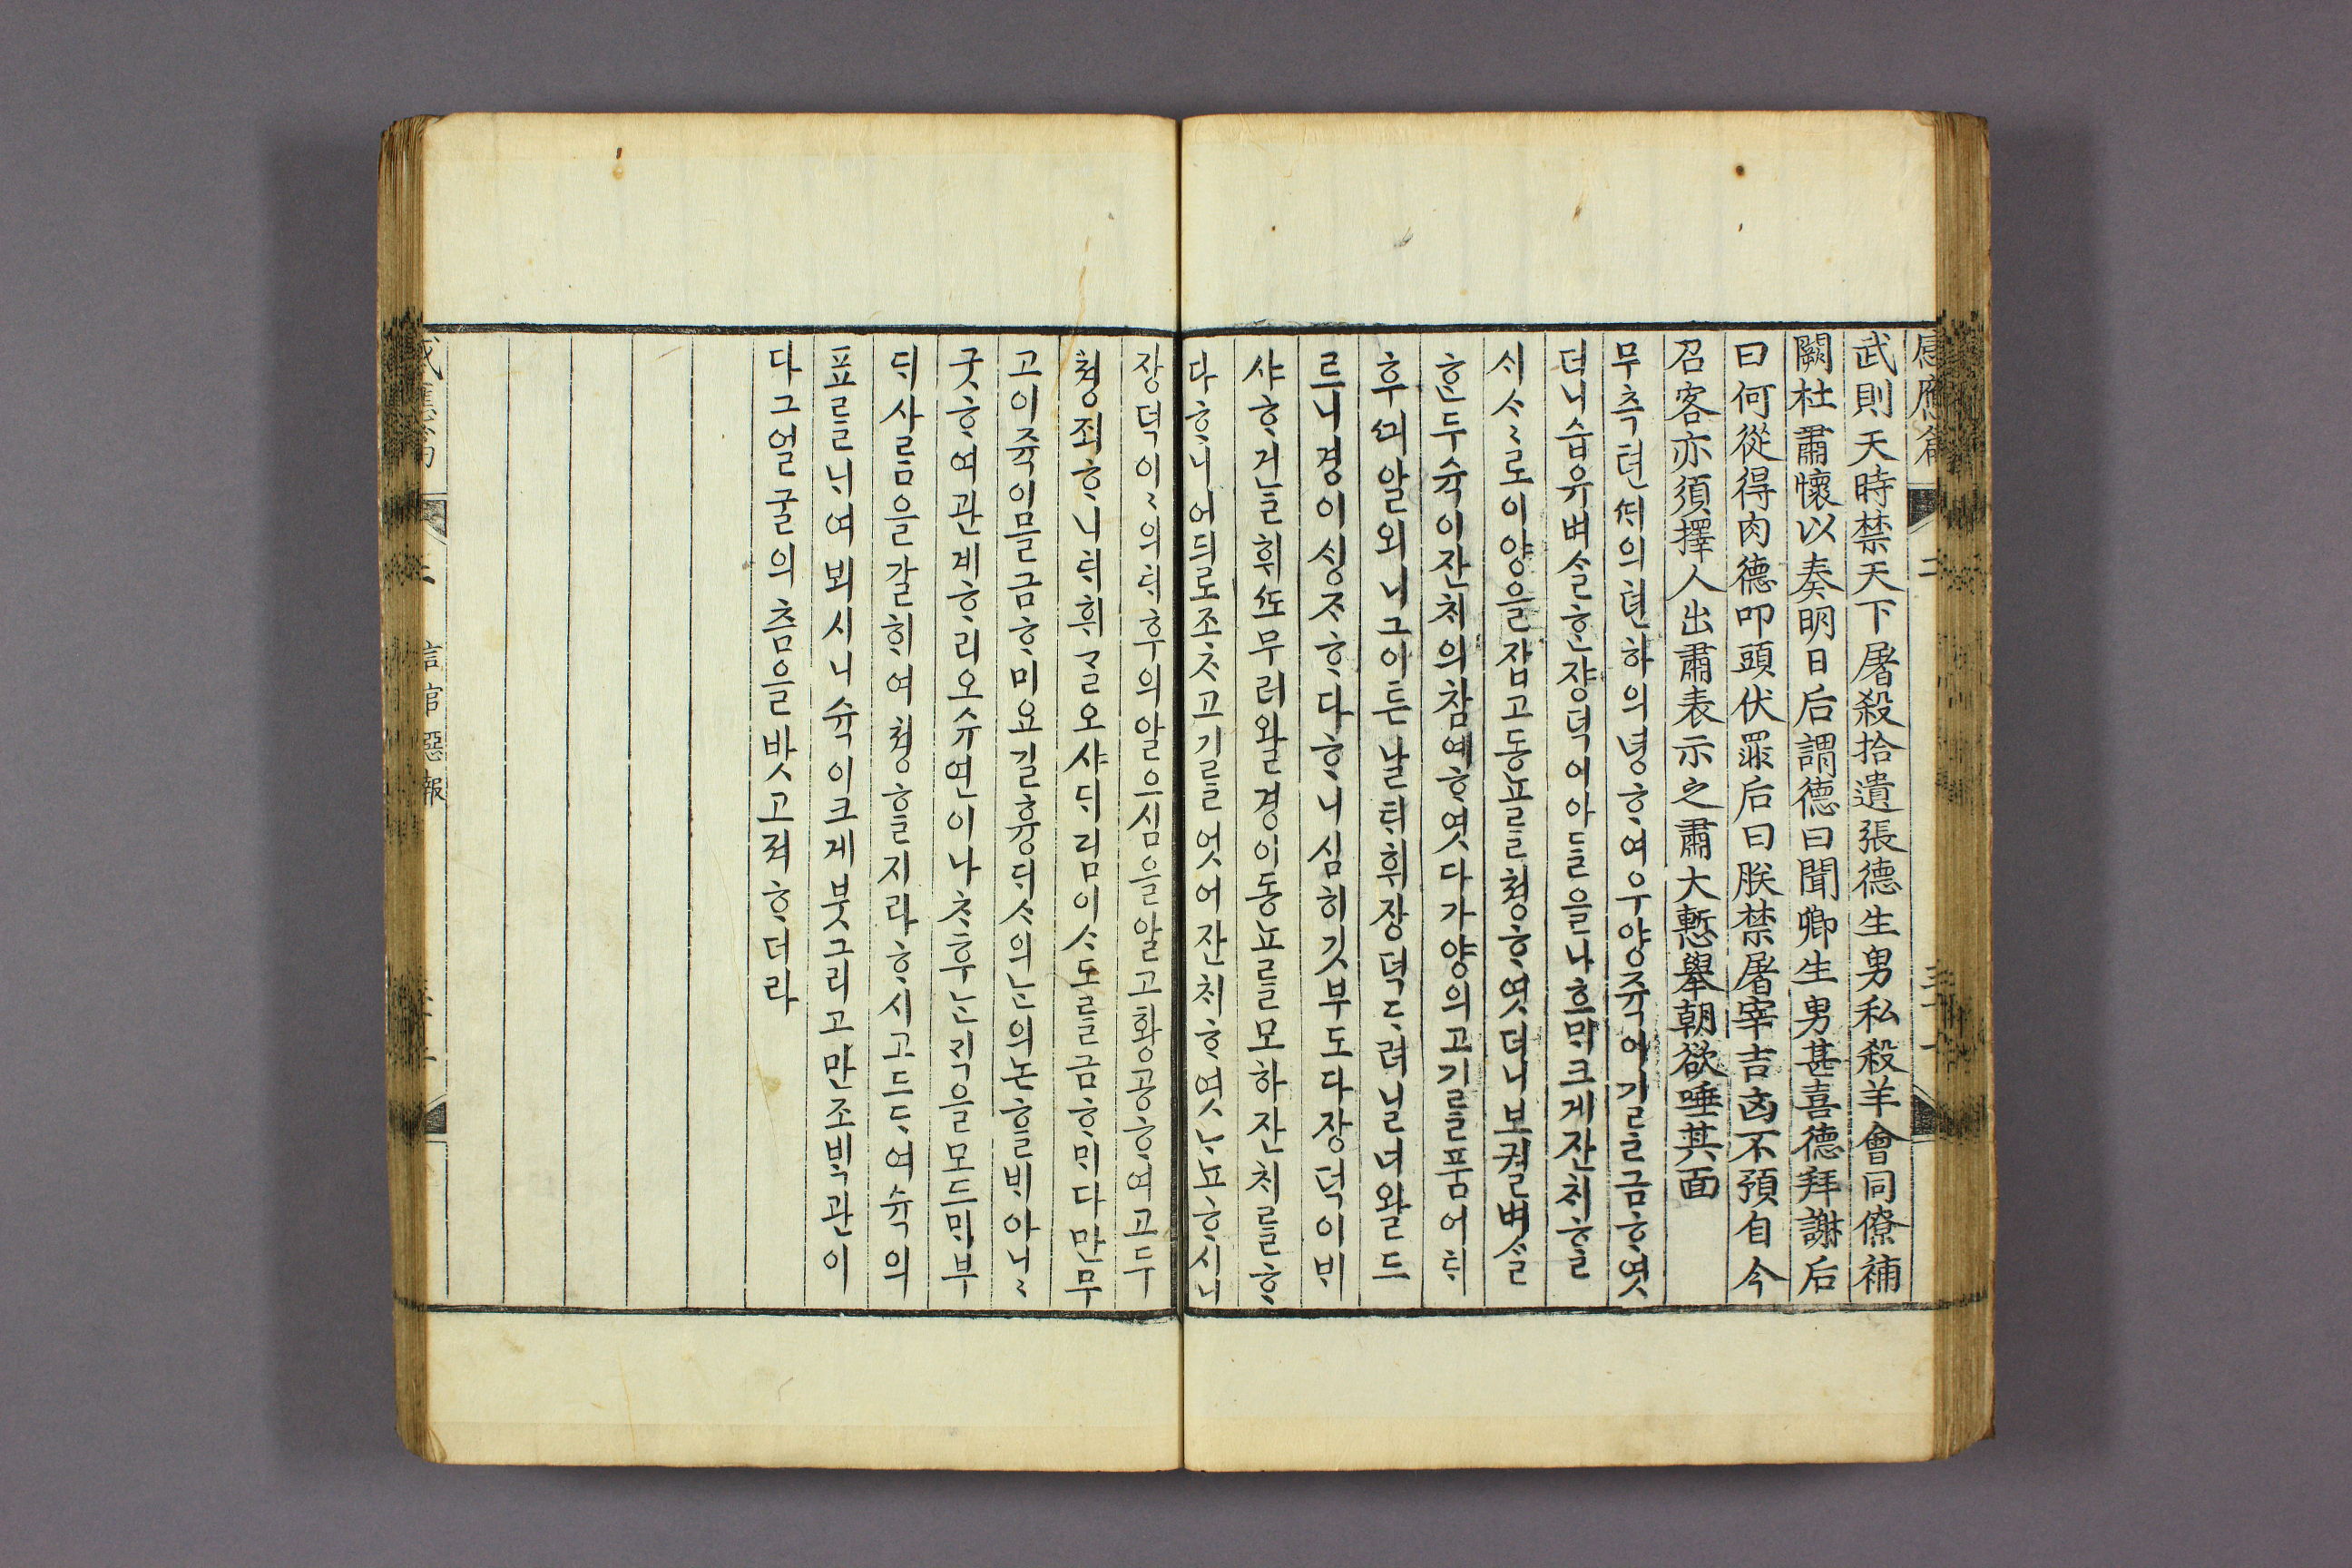 武則天時禁天下屠殺拾遺張德生男私殺羊會同僚補
闕杜肅懷以奏明日后謂德曰聞卿生男甚喜德拜謝后
曰何從得肉德叩頭伏罪后曰朕禁屠宰吉凶不預自今
召客亦須擇人出肅表示之肅大慙擧朝欲唾其面
무측텬ᄯᆡ의텬하의녕ᄒᆞ여우양쥭이기를금ᄒᆞ엿
더니습유벼ᄉᆞᆯᄒᆞᆫ쟝덕이아들을나흐ᄆᆡ크게잔ᄎᆡᄒᆞᆯ
ᄉᆡᄉᆞᄉᆞ로이양을잡고동뇨를쳥ᄒᆞ엿더니보궐벼ᄉᆞᆯ
ᄒᆞᆫ두슉이잔ᄎᆡ의참예ᄒᆞ엿다가양의고기를품어ᄐᆡ
후ᄭᅴ알외니그이튼날ᄐᆡ휘장덕ᄃᆞ려닐너왈드
르니경이ᄉᆡᆼᄌᆞᄒᆞ다ᄒᆞ니심히깃부도다장덕이ᄇᆡ
샤ᄒᆞ건ᄂᆞᆯ휘ᄯᅩ무러왈경이동뇨를모하잔ᄎᆡ를ᄒᆞ
다ᄒᆞ니어듸로조ᄎᆞ고기를엇어잔ᄎᆡᄒᆞ엿ᄂᆞ뇨ᄒᆞ시니
장덕이〻의ᄐᆡ후의알으심을알고황공ᄒᆞ여고두
쳥죄ᄒᆞ니ᄐᆡ휘ᄀᆞᆯ오샤ᄃᆡ림이ᄉᆞ도를금ᄒᆞᄆᆡ다만무
고이쥭이믈금ᄒᆞ미요길흉ᄃᆡᄉᆞ의ᄂᆞᆫ의논ᄒᆞᆯᄇᆡ아니〻
굿ᄒᆞ여관계ᄒᆞ리오슈연이나ᄎᆞ후ᄂᆞᆫᄀᆡᆨ을모드ᄆᆡ부
ᄃᆡ사ᄅᆞᆷ을갈ᄒᆡ여쳥ᄒᆞᆯ지라ᄒᆞ시고드ᄃᆞ여슉의
표를ᄂᆡ여뵈시니슉이크게붓그리고만조ᄇᆡᆨ관이
다그얼굴의춤을밧고져ᄒᆞ더라
二